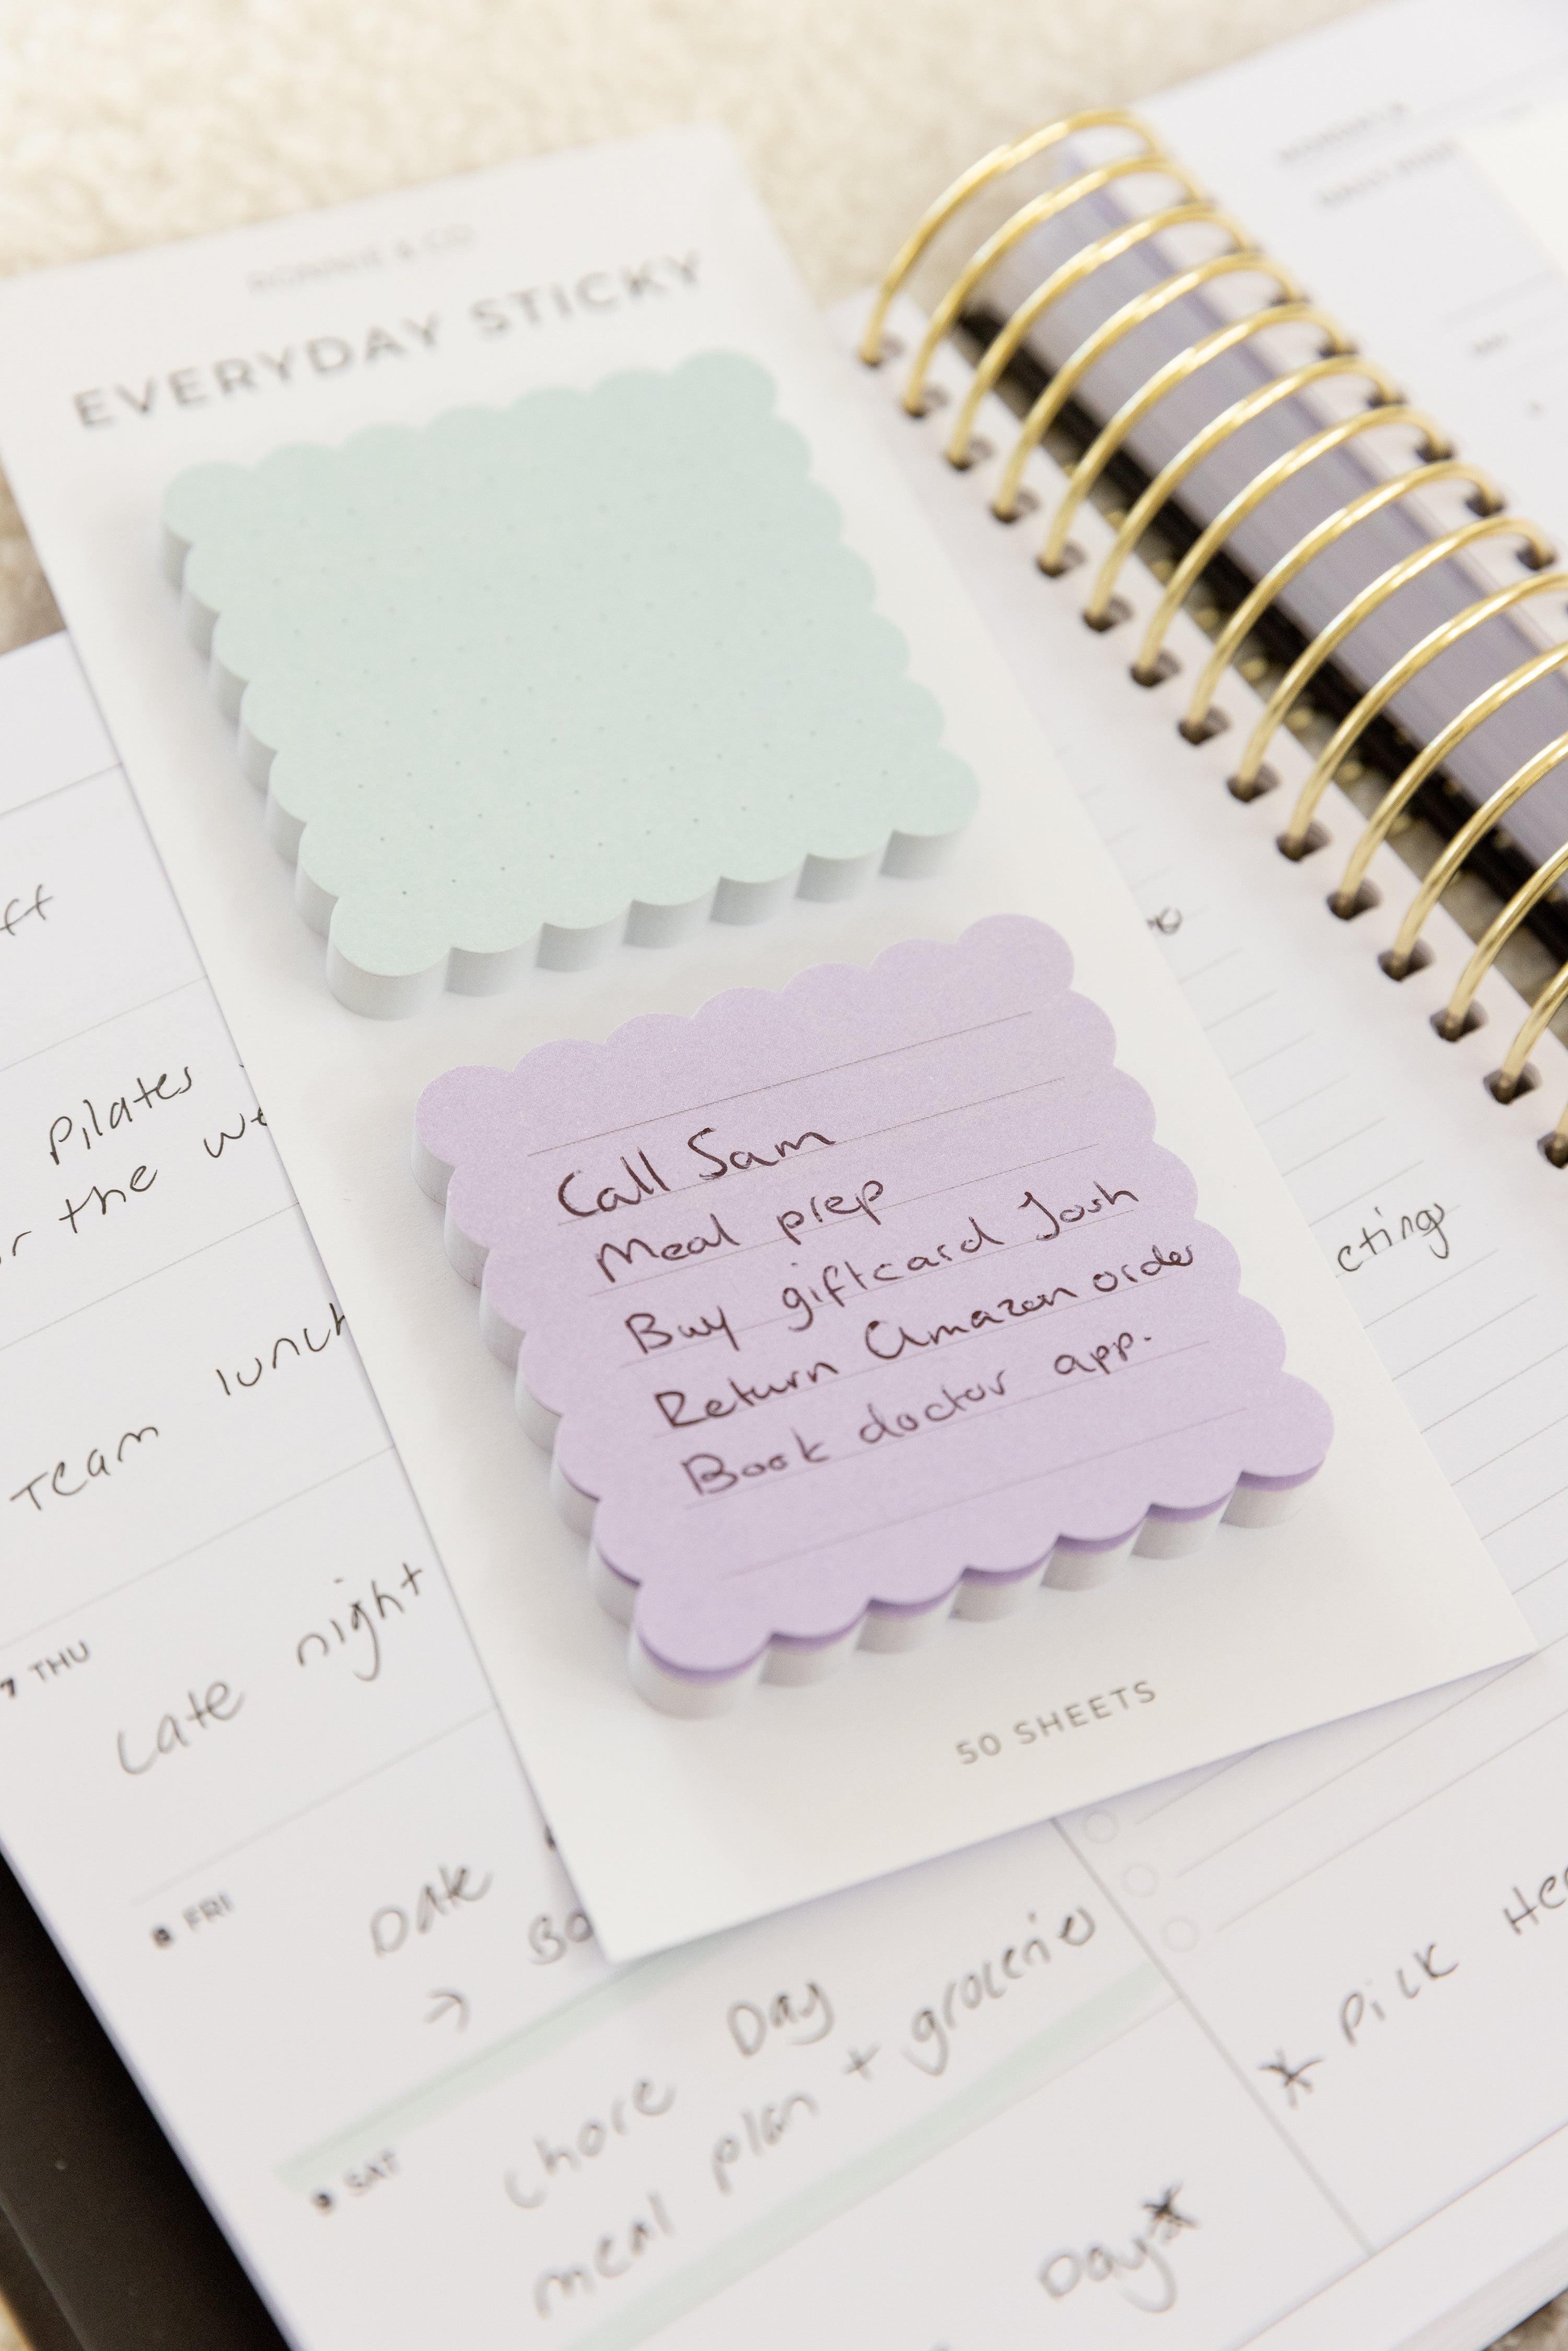 BONNIE & CO
EVERYDAY STICKY
Call Sam
Meal prep
Buy giftcard Josh
Return Amazon order
Book doctor app.
50 SHEETS
Pilates
the
Team lunch
7 THU
Late night
8 FRI
Date
→
9 SAT
Chore Day
meal plan + groceries
Day*
* Pick